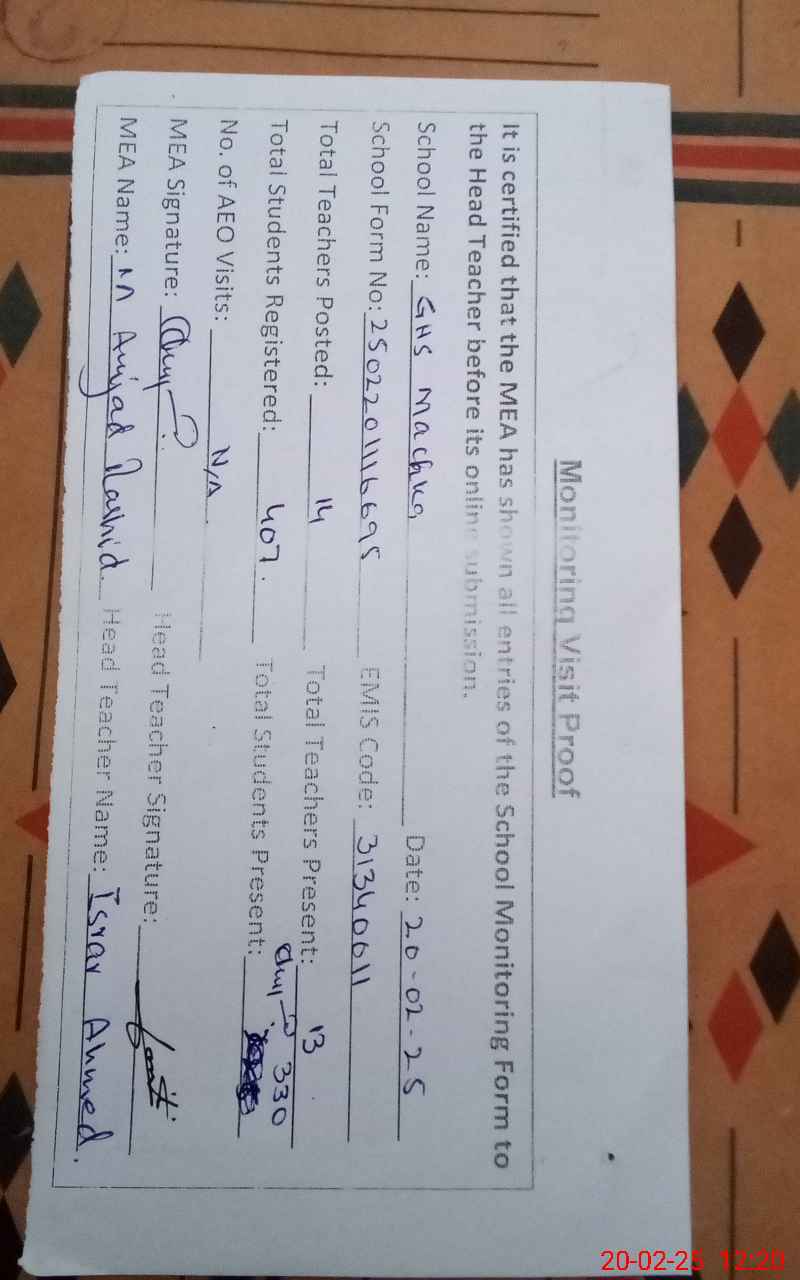 Monitoring Visit Proof
It is certified that the MEA has shown all entries of the School Monitoring Form to
the Head Teacher before its online submission.
School Name: GHS Machka Date: 20-02-25
School Form No: 2502201116695 EMIS Code: 31340011
Total Teachers Posted: 14 Total Teachers Present: 13
Total Students Registered: 407. Total Students Present: 330
No. of AEO Visits: N/A
MEA Signature: Head Teacher Signature:
MEA Name: M Amjad Rashid. Head Teacher Name: Israr Ahmed.
20-02-25 12:20